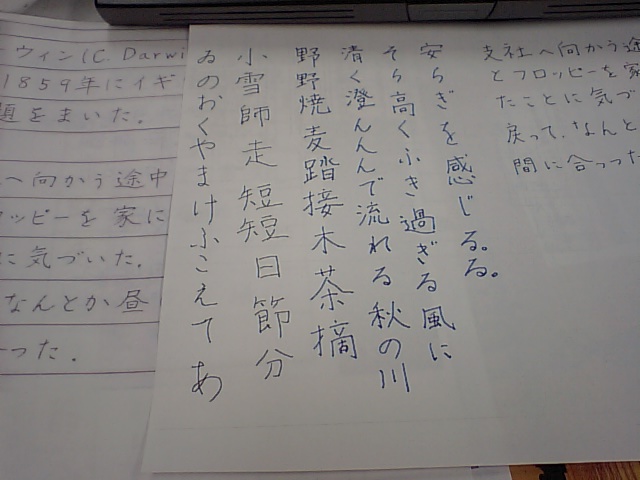 ウィン(C. Darwi
1859年にイギ
題をまいた.
へ向かう途中
ロッピーを家に
に気づいた.
なんとか昼
った.
支社へ向かう途
とフロッピーを家
たことに気づ
戻って,なんと
間に合った
安らぎを感じる。る。
そら高くふき過ぎる風に
清く澄んんんで流れる秋の川
野野焼麦踏接木茶摘
小雪師走短短日節分
ゐのおくやまけふこえてあ